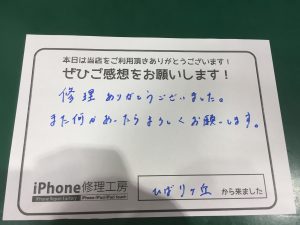 本日は当店をご利用頂きありがとうございます！
ぜひご感想をお願いします！
修理ありがとうございました。
また何かあったらよろしくお願いします。
iPhone修理工房
iPhone Repair Factory iPhone/iPad/iPod touch
ひばりヶ丘 から来ました